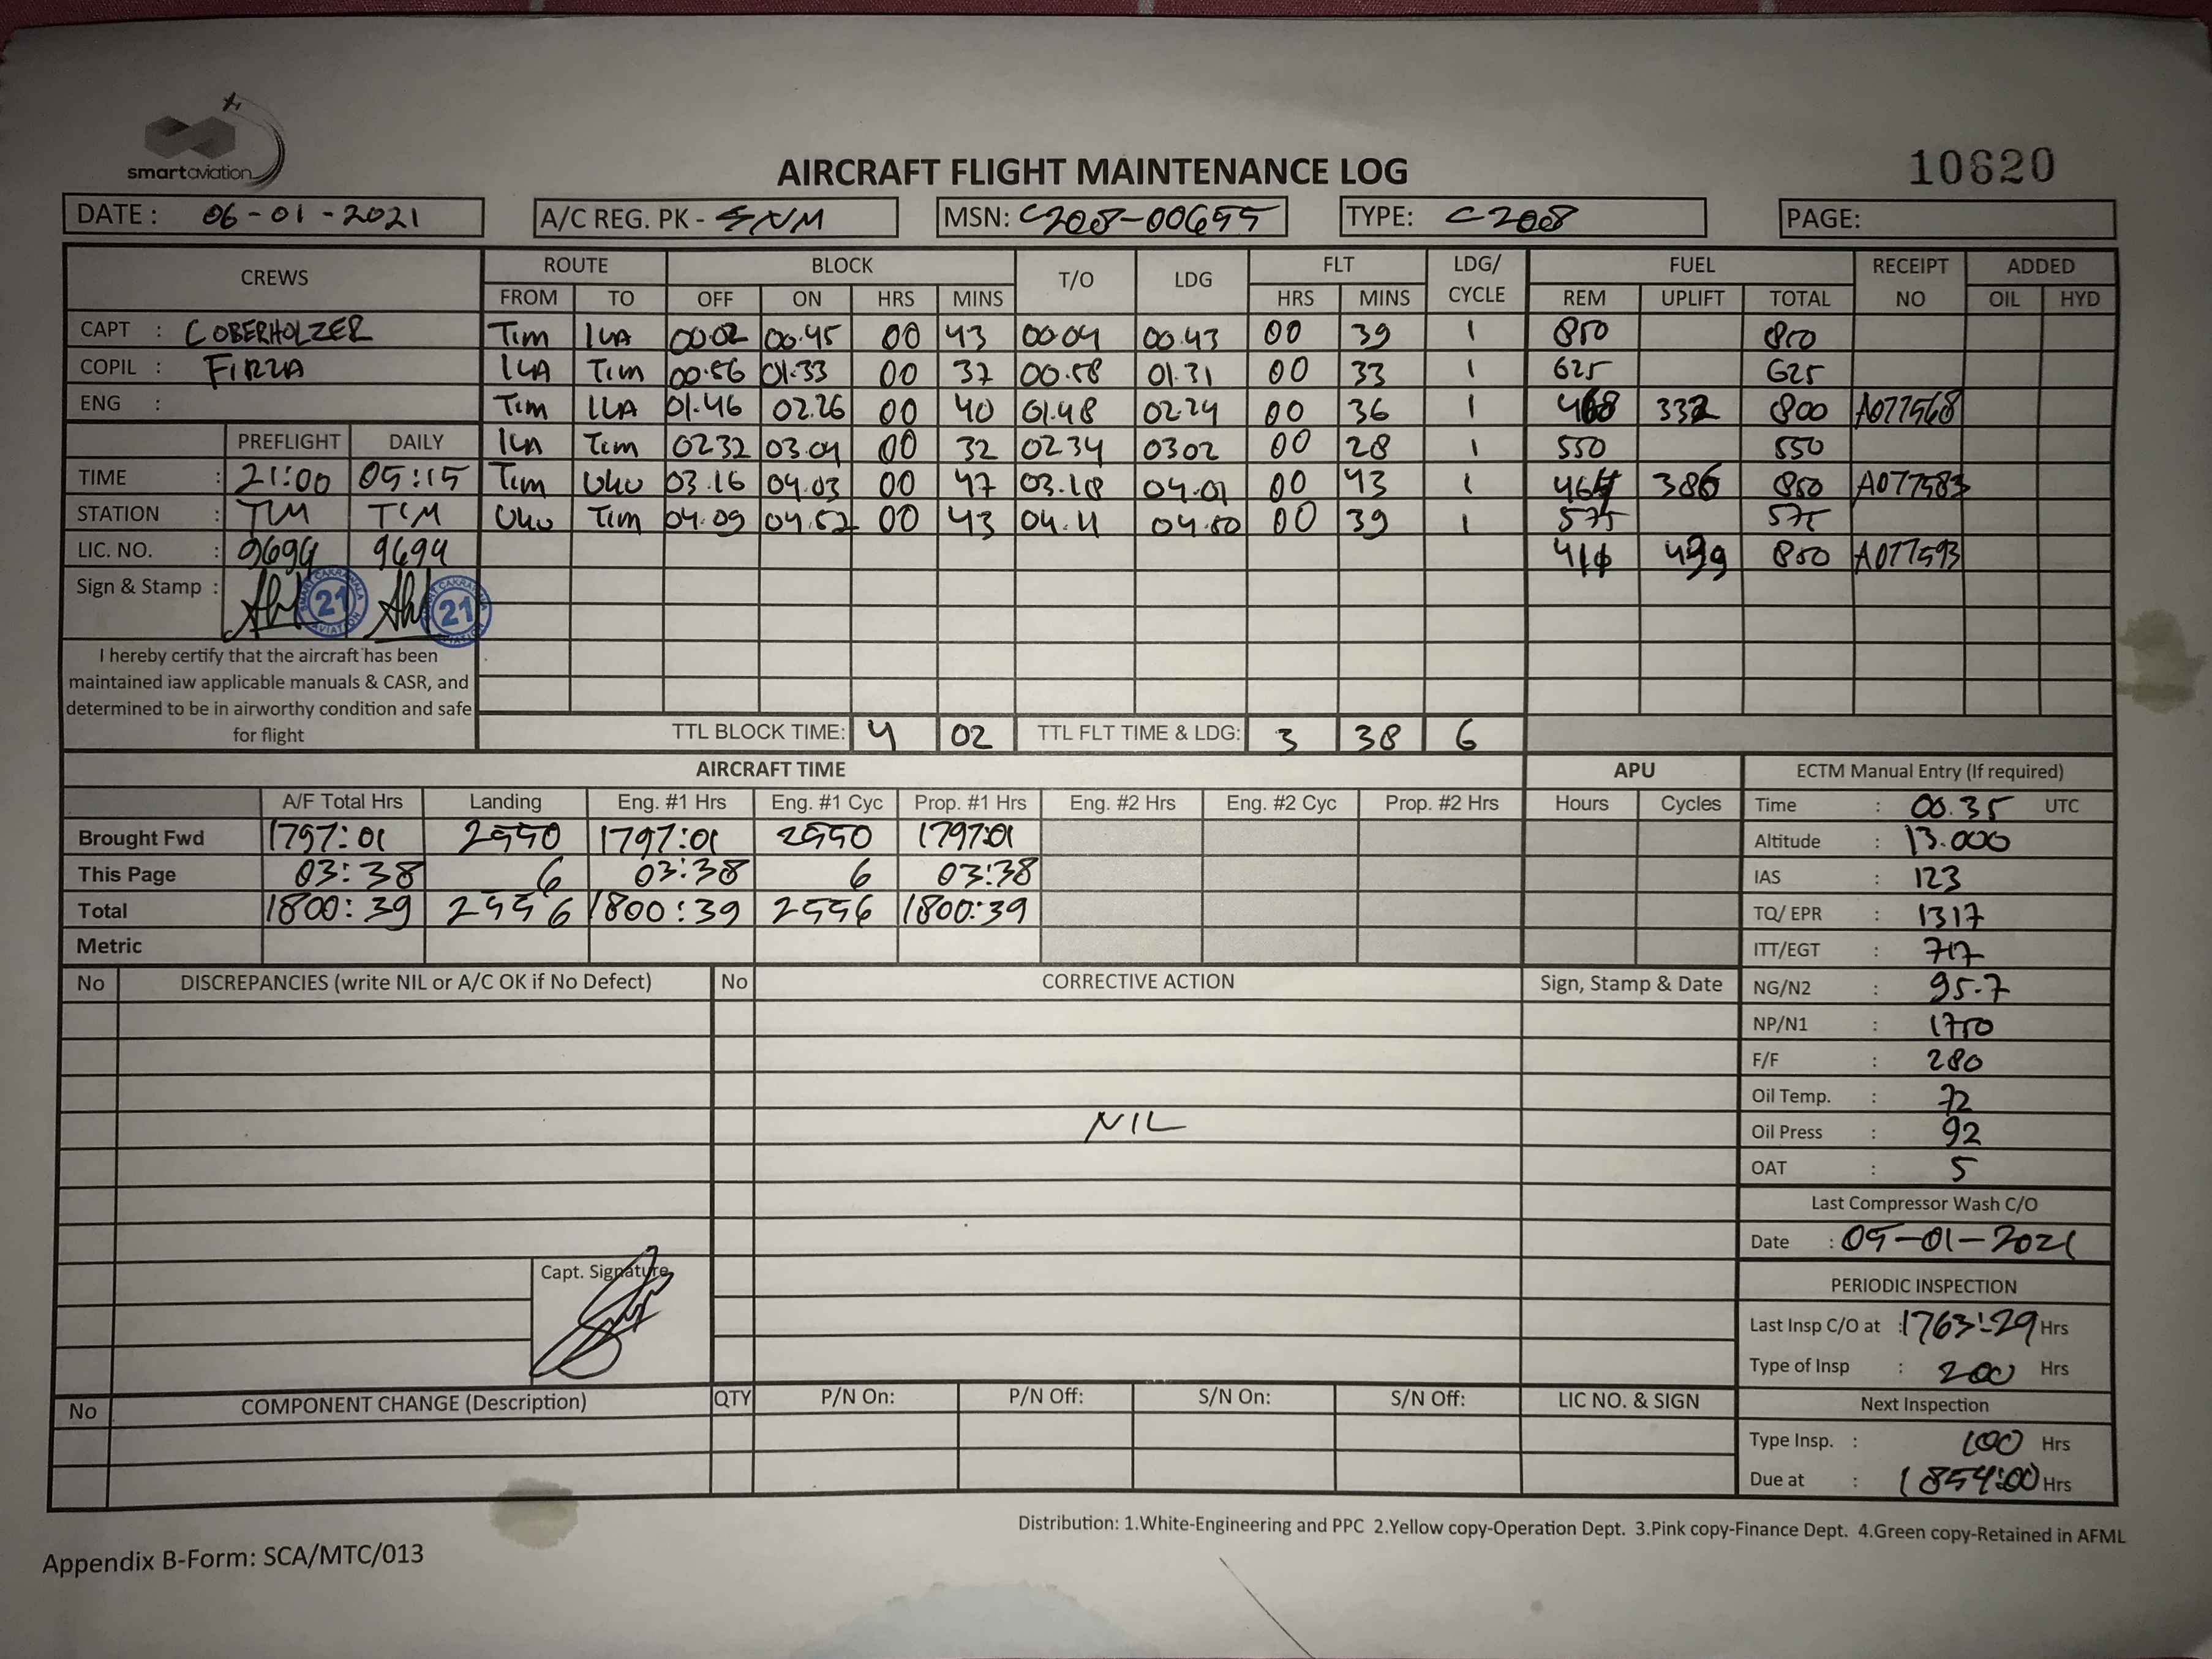 smartaviation
AIRCRAFT FLIGHT MAINTENANCE LOG
10620
DATE : 06-01-2021 A/C REG. PK - SNM MSN: C208-00655 TYPE: C208 PAGE:
CREWS ROUTE BLOCK T/O LDG FLT LDG/ CYCLE FUEL RECEIPT NO ADDED
FROM TO OFF ON HRS MINS HRS MINS REM UPLIFT TOTAL OIL HYD
CAPT : C OBERHOLZER Tim ILA 00.02 00.45 00 43 00.04 00.43 00 39 1 850 850
COPIL : FIRZA ILA Tim 00.56 01.33 00 37 00.58 01.31 00 33 1 625 625
ENG : Tim ILA 01.46 02.26 00 40 01.48 02.24 00 36 1 468 332 800 A077568
PREFLIGHT DAILY ILA Tim 0232 03.04 00 32 0234 0302 00 28 1 550 550
TIME : 21:00 05:15 Tim UKU 03.16 04.03 00 47 03.18 04.01 00 43 1 464 386 850 A077583
STATION : TIM TIM UKU Tim 04.09 04.52 00 43 04.11 04.50 00 39 1 575 575
LIC. NO. : 9694 9694 850 A077593
Sign & Stamp : 21 21
I hereby certify that the aircraft has been
maintained iaw applicable manuals & CASR, and
determined to be in airworthy condition and safe
for flight
TTL BLOCK TIME: 4 02 TTL FLT TIME & LDG: 3 38 6
AIRCRAFT TIME APU ECTM Manual Entry (If required)
A/F Total Hrs Landing Eng. #1 Hrs Eng. #1 Cyc Prop. #1 Hrs Eng. #2 Hrs Eng. #2 Cyc Prop. #2 Hrs Hours Cycles Time : 00.35 UTC
Brought Fwd 1797:01 2550 1797:01 2550 1797:01 Altitude : 13.000
This Page 03:38 6 03:38 6 03:38 IAS : 123
Total 1800:39 2556 1800:39 2556 1800:39 TQ/ EPR : 1317
Metric ITT/EGT : 717
No DISCREPANCIES (write NIL or A/C OK if No Defect) No CORRECTIVE ACTION Sign, Stamp & Date NG/N2 : 95.7
NP/N1 : 1750
F/F : 280
Oil Temp. : 72
NIL
Oil Press : 92
OAT : 5
Last Compressor Wash C/O
Date : 05-01-2021
Capt. Signature
PERIODIC INSPECTION
Last Insp C/O at : 1763:29 Hrs
Type of Insp : 200 Hrs
No COMPONENT CHANGE (Description) QTY P/N On: P/N Off: S/N On: S/N Off: LIC NO. & SIGN Next Inspection
Type Insp. : 100 Hrs
Due at : 1854:00 Hrs
Distribution: 1.White-Engineering and PPC 2.Yellow copy-Operation Dept. 3.Pink copy-Finance Dept. 4.Green copy-Retained in AFML
Appendix B-Form: SCA/MTC/013